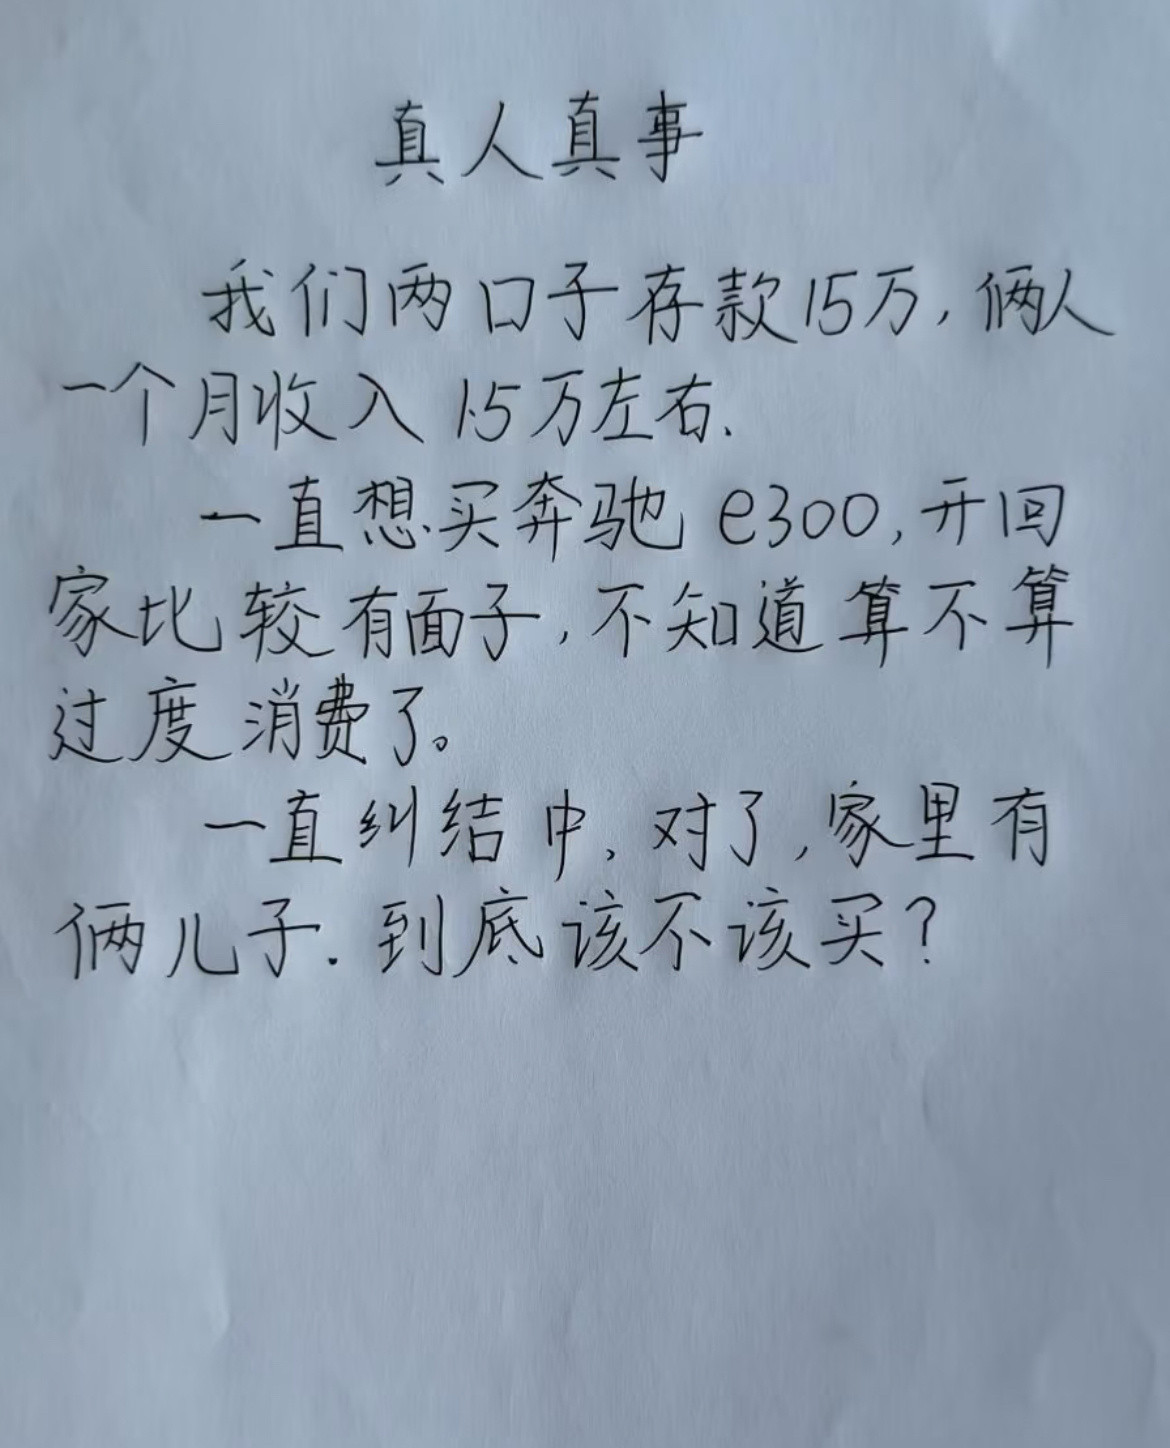 真人真事
我们两口子存款15万,俩人
一个月收入1.5万左右.
一直想买奔驰e300,开回
家比较有面子,不知道算不算
过度消费了。
一直纠结中,对了,家里有
俩儿子.到底该不该买?